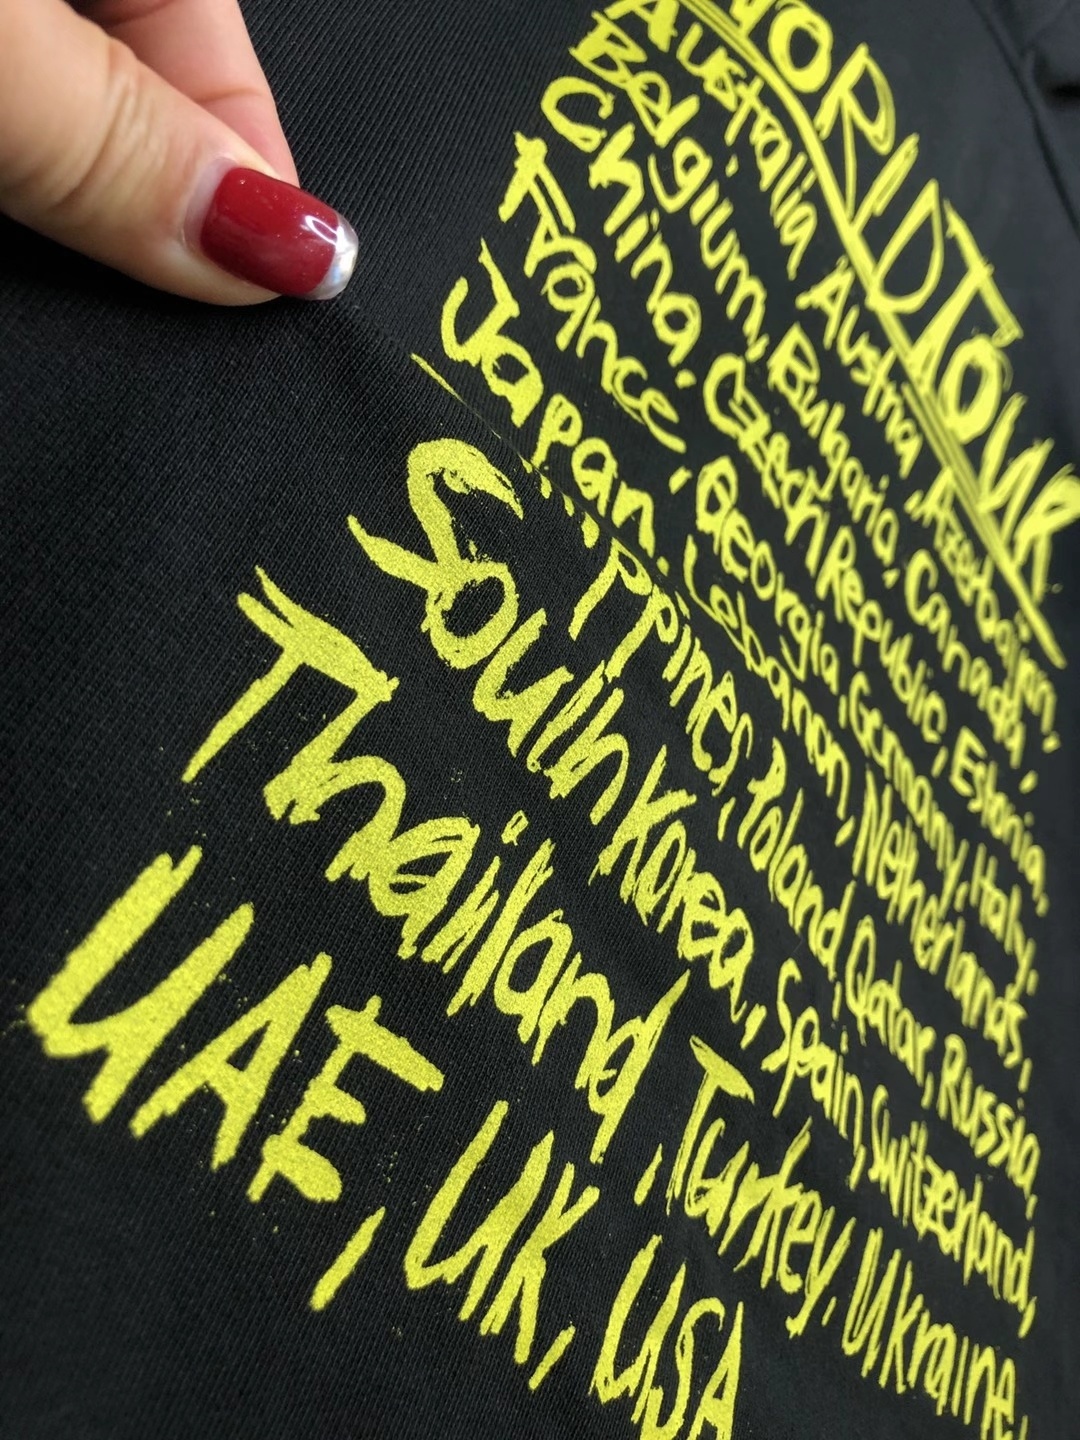 WORLD TOUR
Australia Austria, Azerbaijan,
Belgium, Bulgaria, Canada,
China, Czech Republic, Estonia,
France, Georgia, Germany, Italy,
Japan, Lebanon, Netherlands,
ppines, Poland, Qatar, Russia,
South Korea, Spain, Switzerland,
Thailand, Turkey, Ukraine,
UAE, UK, USA